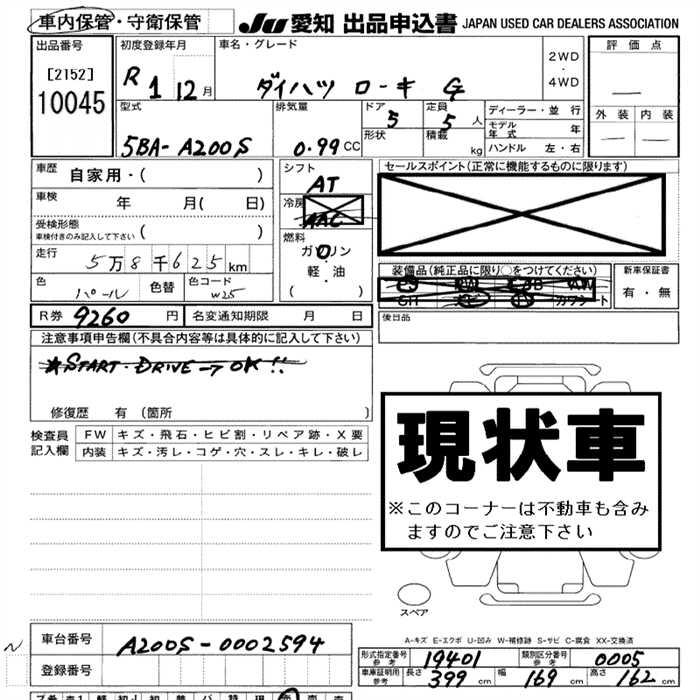 車内保管・守衛保管
JU 愛知 出品申込書 JAPAN USED CAR DEALERS ASSOCIATION
出品番号
[2152]
10045
初度登録年月
R 1 12月
車名・グレード
ダイハツ ローキ G
2WD
・
4WD
評価点
外装 内装
型式
5BA-A200S
排気量
0.99CC
ドア
5
形状
定員
5人
積載
kg
ディーラー・並行
モデル年式 年
ハンドル 左・右
車歴
自家用・( )
車検
年 月( 日)
受検形態
車検付きのみ記入して下さい ( )
走行
5万8千625km
色
パール
色替
色コード
W25
シフト
AT
冷房
AAC
燃料
ガソリン
軽・油
( )
セールスポイント(正常に機能するものに限ります)
装備品(純正品に限り○をつけてください)
カワシート
新車保証書
有・無
後日品
R券 9260 円
名変通知期限 月 日
注意事項申告欄(不具合内容等は具体的に記入して下さい)
★START・DRIVE→OK!!
修復歴 有(箇所 )
検査員記入欄
FW キズ・飛石・ヒビ割・リペア跡・X要
内装 キズ・汚レ・コゲ・穴・スレ・キレ・破レ
現状車
※このコーナーは不動車も含み
ますのでご注意下さい
スペア
A-キズ E-エクボ U-凹み W-補修跡 S-サビ C-腐食 XX-交換済
車台番号
A200S-0002594
登録番号
形式指定番号
参考
19401
類別区分番号
参考
0005
車庫証明用
参考
長さ 399 cm
幅 169 cm
高さ 162 cm